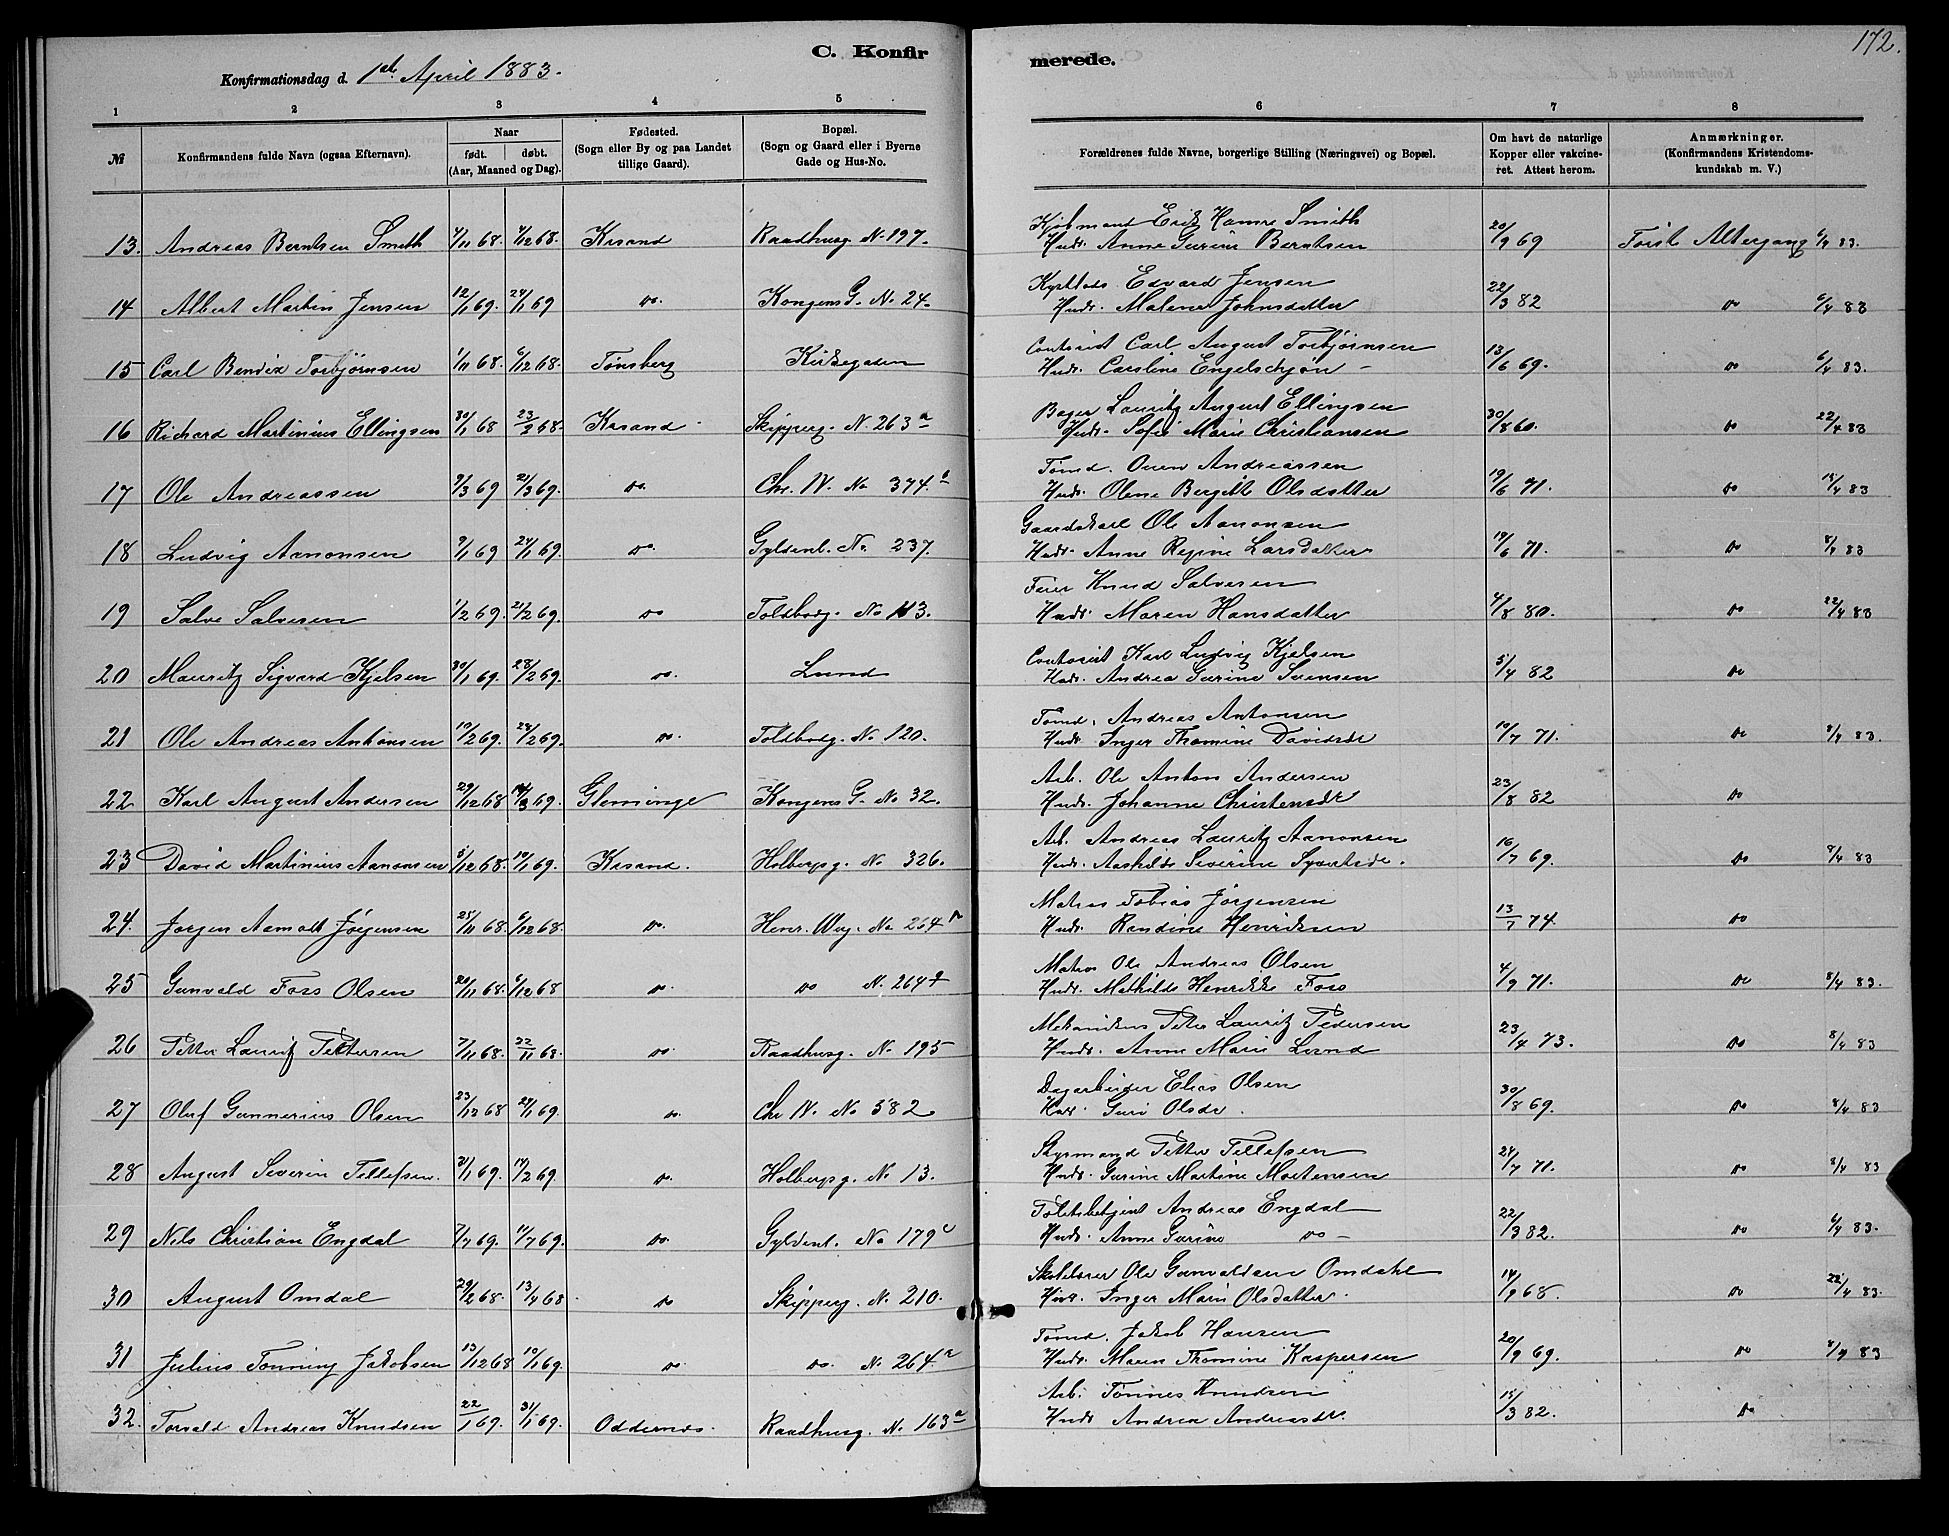 172.
C. Konfirmerede.
Konfirmationsdag d. 1ste April 1883.
1 2 3 4 5 6 7 8
№ Konfirmandens fulde Navn (ogsaa Efternavn). Naar født. døbt. (Aar, Maaned og Dag). Fødested. (Sogn eller By og paa Landet tillige Gaard). Bopæl. (Sogn og Gaard eller i Byerne Gade og Hus-No. Forældrenes fulde Navne, borgerlige Stilling (Næringsvei) og Bopæl. Om havt de naturlige Kopper eller vakcineret. Attest herom. Anmærkninger. (Konfirmandens Kristendomskundskab m. V.)
Kjøbmand Erik Hamre Smith
13. Andreas Berntsen Smith 4/11 68. 4/12 68. Krsand Raadhusg. No 197. Hudr. Anne Gurine Berntsen 20/9 69 Første Altergang 6/4 83.
Edvard Jensen
14 Albert Martin Jensen 12/1 69. 24/1 69 do. Kongens G. No 24. Hudr. Malene Johnsdatter 22/3 82 do 6/4 83
Contorist Carl August Torbjørnsen
15 Carl Bendix Torbjørnsen 1/11 68. 6/12 68. Tønsberg Kirkegaden Hudr. Caroline Engelschjøn 13/6 69. do 6/4 83.
Bager Lauritz August Ellingsen
16 Richard Martinius Ellingsen 30/1 68 23/2 68. Krsand Skipperg. No 263 a Hudr. Sofie Marie Christiansen 30/8 60. do 22/4 83
Tømd. Ouen Andreassen
17 Ole Andreassen 9/3 69 21/3 69. do. Chr. IV. No 374. b Hudr. Olene Bergitte Olsdatter 19/6 71. do 15/4 83
Gaardskarl Ole Aanonsen
18 Ludvig Aanonsen 9/1 69 24/1 69. do. Gyldenl. No 237. Hudr. Anne Regine Larsdatter 19/6 71. do 8/4 83
Feier Knud Salvesen
19 Salve Salvesen 1/2 69. 21/2 69. do Toldbodg. No 113. Hudr. Maren Hansdatter 4/8 80. do 22/4 83
Contorist Karl Ludvig Kjelsen
20 Mauritz Sigvard Kjelsen 30/1 69. 28/2 69. do. Lund Hudr. Andrea Gurine Svensen 5/4 82 do
Tømd. Andreas Antonsen
21 Ole Andreas Antonsen 10/2 69. 28/2 69. do. Toldbodg. No 120. Hudr. Inger Thomine Davidsdr 10/7 71. do 8/4 83.
Arb. Ole Anton Andersen
22 Karl August Andersen 29/12 68 14/3 69. Glemminge Kongens G. No 32. Hudr. Johanne Christensdr 23/8 82 do
Arb. Andreas Lauritz Aanonsen
23 David Martinius Aanonsen 5/12 68. 10/1 69. Krsand. Holbergsg. No 326. Hudr. Aashilde Severine Syvertsdr. 16/7 69. do 8/4 83
Matros Tobias Jörgensen
24. Jørgen Aamodt Jörgensen 25/11 68. 6/12 68. do. Henr. Werg. No 264 Hudr. Randine Henriksen 13/7 74. do
Matros Ole Andreas Olsen
25 Gunvald Foss Olsen 20/11 68. 6/12 68 do. do No. 264 Hudr. Mathilde Henrikke Foss 4/9 71. do 8/4 83.
Mekanikus Petter Lauritz Pedersen
26 Petter Lauritz Pettersen 7/11 68. 22/11 68. do. Raadhusg. No 195 Hudr. Anne Marie Lund 23/4 73. do 8/4 83
Dagarbeider Elias Olsen
27 Oluf Gunnerius Olsen 23/12 68 24/1 69. do. Chr IV. No 382. Hudr. Guri Olsdr. 30/8 69. do 8/4 83
Styrmand Petter Tellefsen
28 August Severin Tellefsen. 21/1 69. 14/2 69. do. Holbergsg. No 13. Hudr. Gurine Martine Mortensen 24/7 71. do 8/4 83
Toldbetjent Andreas Engdal
29 Nils Christian Engdal 7/4 69. 11/7 69. do. Gyldenl. No 179 c Hudr. Anne Gurine do 22/3 82. do 6/4 83.
Skolelærer Ole Gunvaldsen Omdahl
30 August Omdal 29/2 68. 13/4 68. do Skipperg. No 210. Hudr. Inger Marie Olsdatter. 14/9 68. do 22/4 83.
Tømd. Jakob Hansen
31 Julius Tønning Jakobsen 13/12 68 10/1 69. do. do. No 264 a Hudr. Maren Thomine Kaspersen 20/9 69. do 8/4 83
Arb. Tønnes Knudsen
32. Torvald Andreas Knudsen 22/1 69. 31/1 69. Oddernes. Raadhusg. No 163 a Hudr Andrea Andreasdr. 15/3 82. do